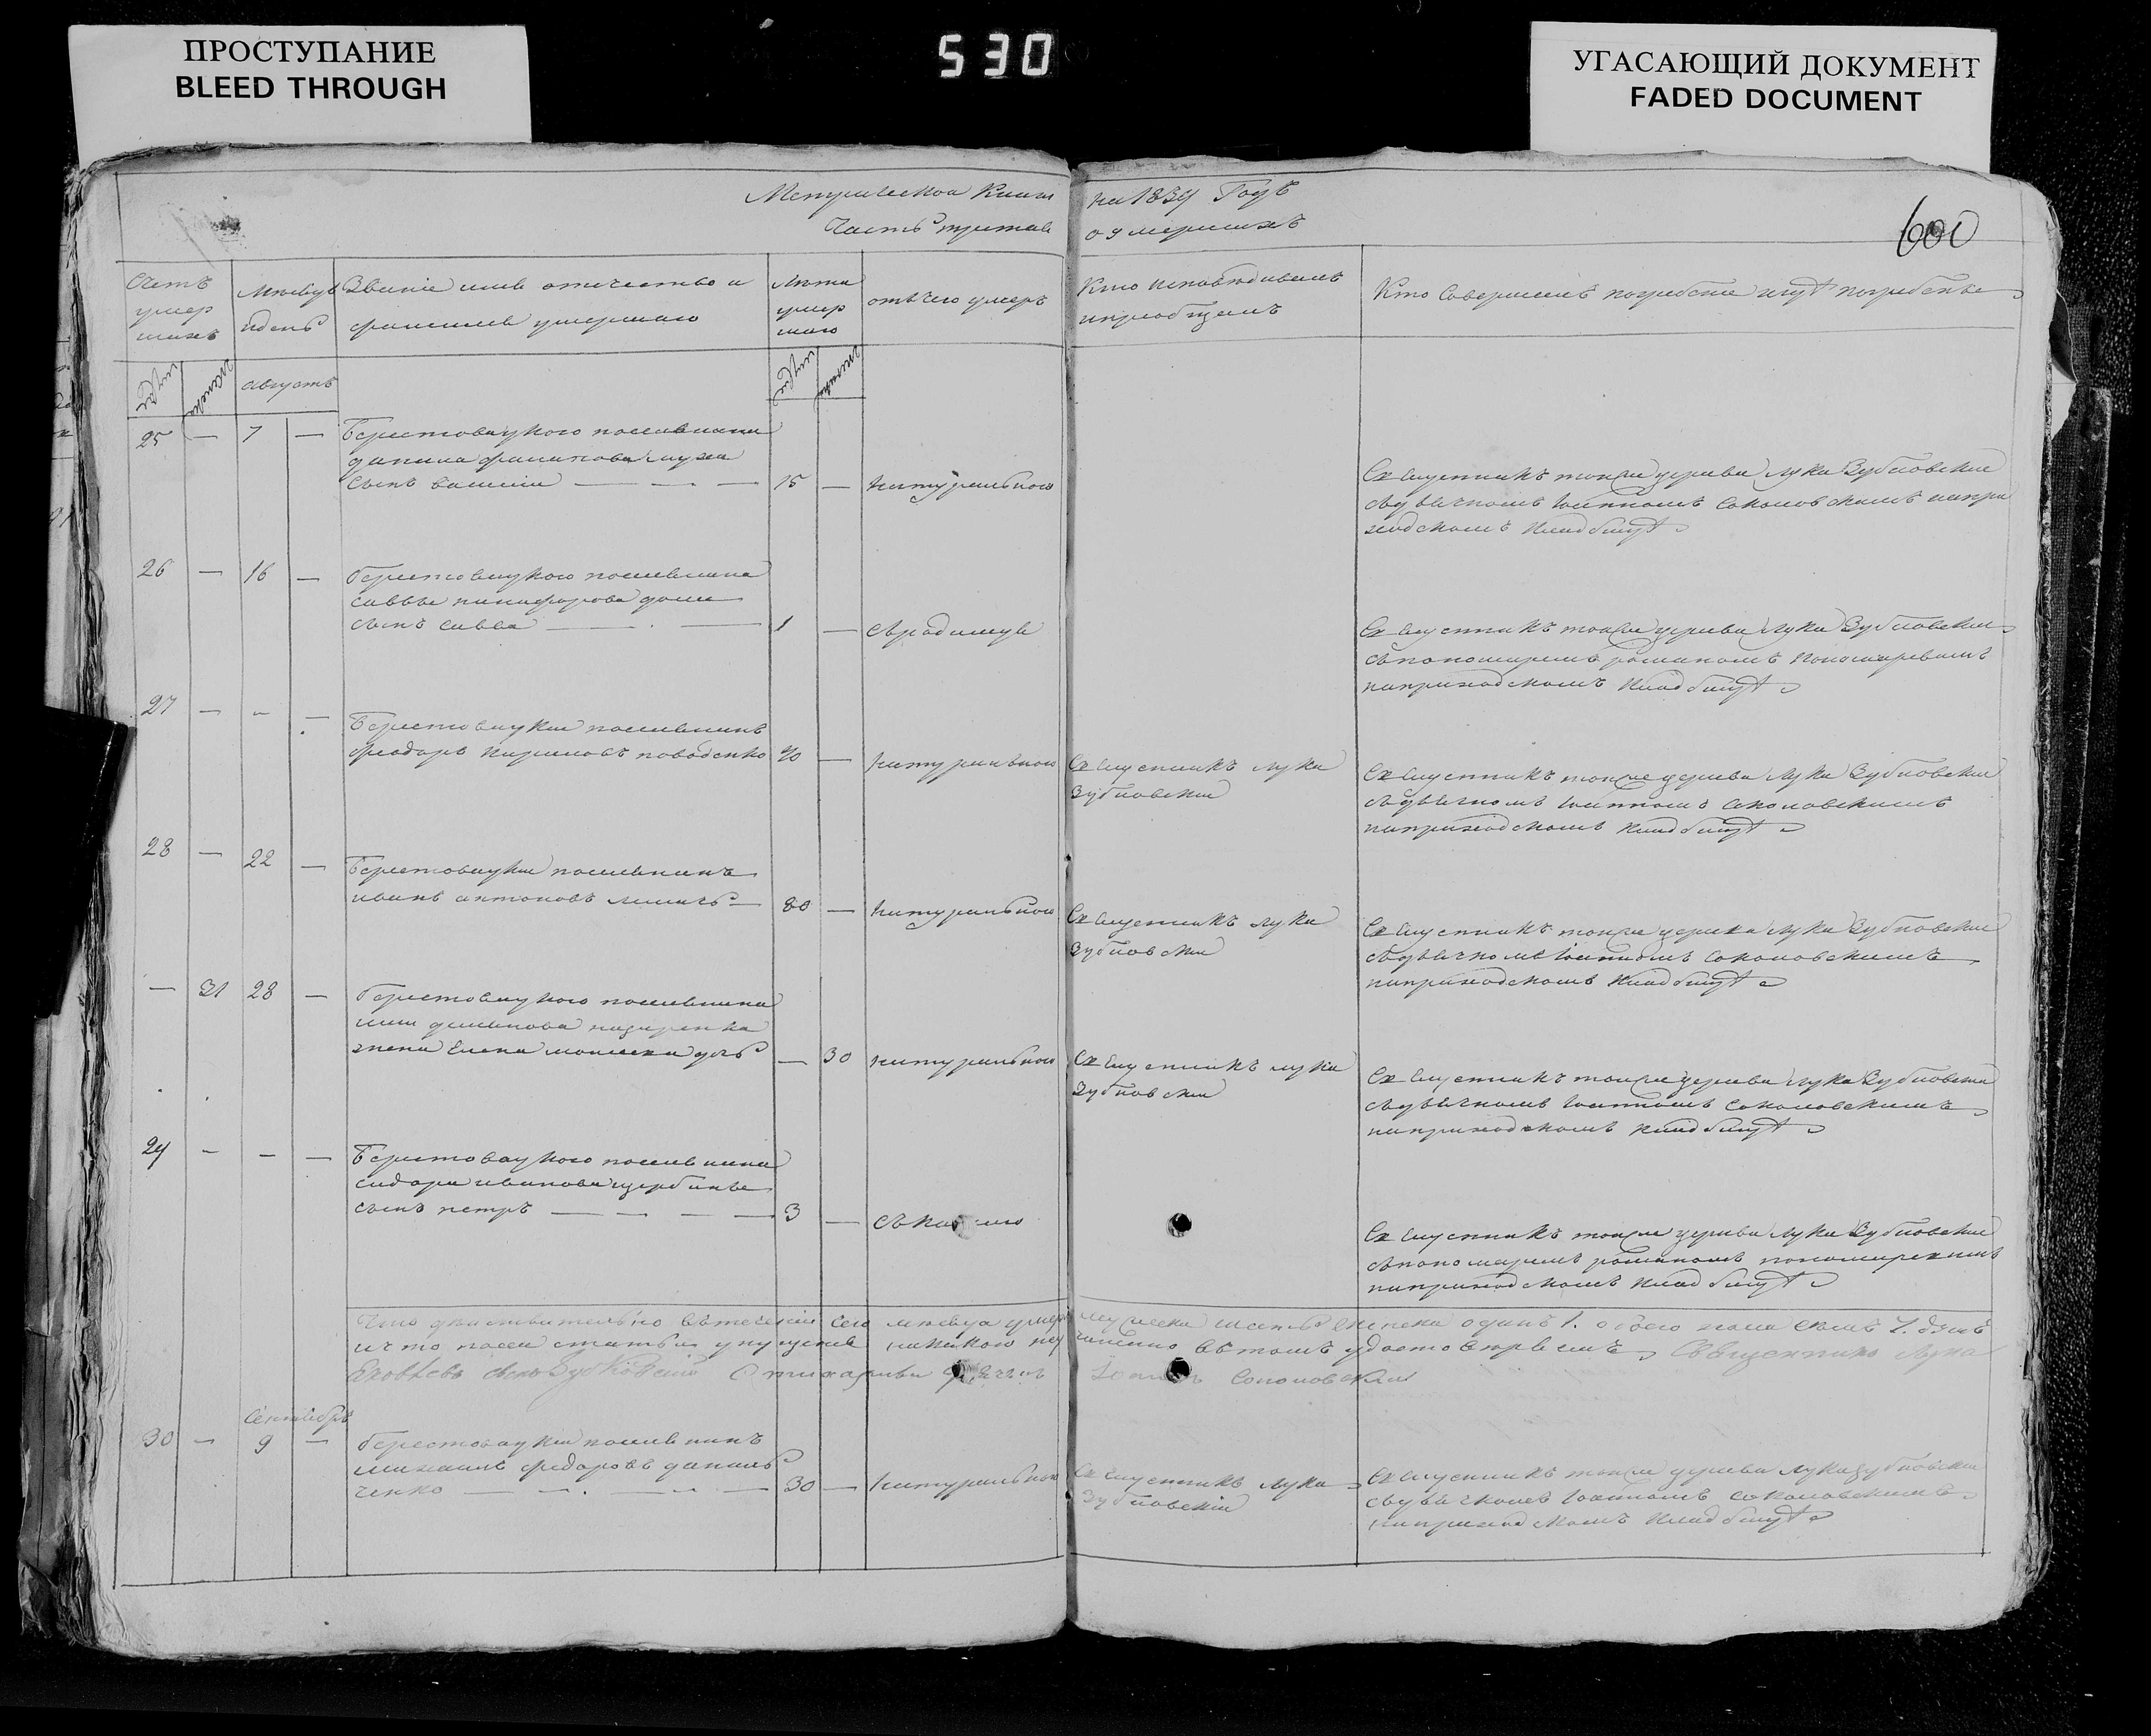 ПРОСТУПАНИЕ
BLEED THROUGH
530
УГАСАЮЩИЙ ДОКУМЕНТ
FADED DOCUMENT
Метрической Книги на 1834 Годъ
Часть третья о умершихъ
600
Счетъ умершихъ
Мѣсяцъ и день
Званіе имя отчество и фамилия умершаго
Лѣта умершаго
отъ чего умеръ
Кто исповѣдывалъ и приобщалъ
Кто совершалъ погребение и гдѣ погребены
августъ
25 — 7 — Берестовацкого поселянина
данила
сынъ василий — — — 15 — натуральною
Священникъ тоя же церкви Лука Зубковский
съ дьячкомъ Іоанномъ Соколовскимъ на при
ходскомъ кладбищѣ
26 — 16 — берестовацкого поселянина
саввы никифорова
сынъ савва — — 1 — съ родимцу
Священникъ тоя же церкви Лука Зубковский
съ пономаремъ романомъ Пономаревымъ
на приходскомъ кладбищѣ
27 — — — Берестовацкий поселянинъ
феодоръ кириловъ 90 — натуральною
Священникъ Лука
Зубковский
Священникъ тоя же церкви Лука Зубковский
съ дьячкомъ Іоанномъ Соколовскимъ
на приходскомъ кладбищѣ
28 — 22 — Берестовацкий поселянинъ
иванъ антоновъ — 80 — натуральною
Священникъ Лука
Зубковский
Священникъ тоя же церкви Лука Зубковский
съ дьячкомъ Іоанномъ Соколовскимъ
на приходскомъ кладбищѣ
— 31 28 — берестовацкого поселянина
назаренка
жена Елена дочь — 30 натуральною
Священникъ лука
Зубковский
Священникъ тоя же церкви Лука Зубковский
съ дьячкомъ Іоанномъ Соколовскимъ
на приходскомъ кладбищѣ
29 — — — Берестовацкого поселянина
сидора иванова щербины
сынъ петръ — — — — 3 — съ кашлю
Священникъ тоя же церкви Лука Зубковский
съ пономаремъ романомъ пономаревымъ
на приходскомъ кладбищѣ
Что действительно въ течении сего мѣсяца умерло мужеска шесть женска одинъ 1. обоего пола семь 7. душъ
и что после статьи упущения никакого не учинено въ томъ удостовѣряемъ Священникъ Лука
Зубковский дьячокъ Іоаннъ Соколовский
Сентябрь
30 — 9 — берестовацкий поселянинъ
михаилъ федоровъ даниль
ченко — — — — 30 — натуральною
Священникъ Лука
Зубковский
Священникъ тоя же церкви Лука Зубковский
съ дьячкомъ Іоанномъ соколовскимъ
на приходскомъ кладбищѣ